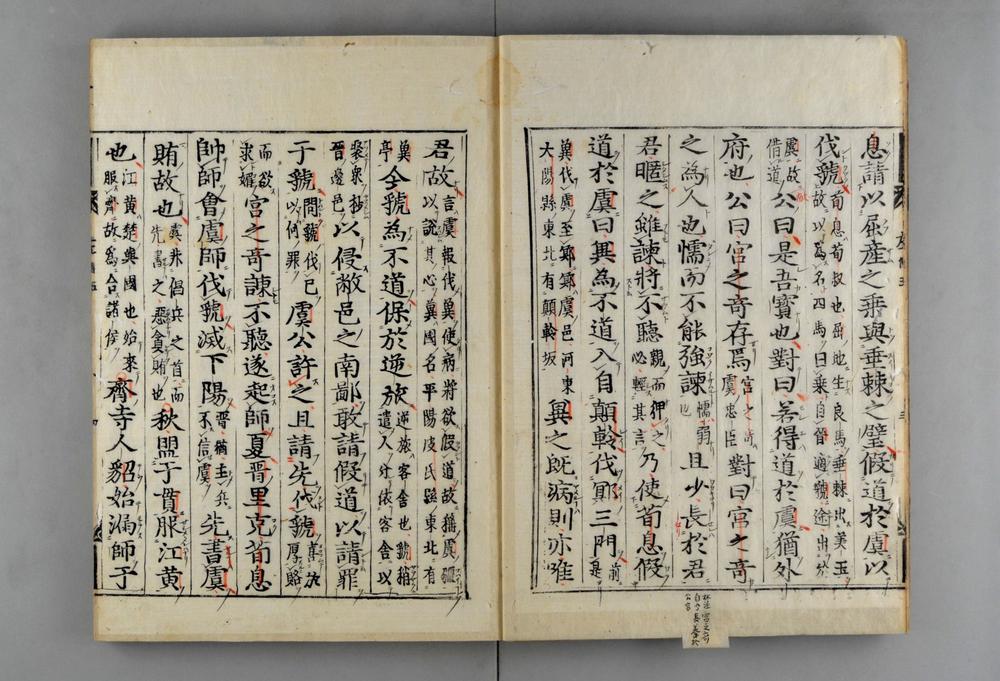 息請以屈産之乗與垂棘之璧假道於虞以
伐虢荀息荀叔也屈地生良馬垂棘出美玉
故以為名四馬曰乗自晉適虢途出於
虞故
借道公曰是吾寳也對曰若得道於虞猶外
府也公曰宮之奇存焉宮之奇
虞忠臣對曰宮之奇
之為人也懦而不能強諫懦弱
也且少長於君
君暱之雖諫將不聽親而狎之
必輕其言乃使荀息假
道於虞曰冀為不道入自顛軨伐鄍三門前是
冀伐虞至鄍鄍虞邑河東
大陽縣東北有顛軨坂冀之既病則亦唯
君故言虞報伐冀使病將欲假道故稱虞彊
以説其心冀國名平陽皮氏縣東北有
冀
亭今虢為不道保於逆旅逆旅客舎也虢稍
遣人分依客舎以
聚衆抄
晉邊邑以侵敝邑之南鄙敢請假道以請罪
于虢問虢伐已
以何罪虞公許之且請先伐虢喜於
厚賂
而欲
求媚宮之奇諫不聽遂起師夏晉里克荀息
帥師會虞師伐虢滅下陽晉猶主兵
不信虞先書虞
賄故也虞非倡兵之首而
先書之惡貪賄也秋盟于貫服江黄
也江黄楚與國也始來
服齊故為合諸侯齊寺人貂始漏師于